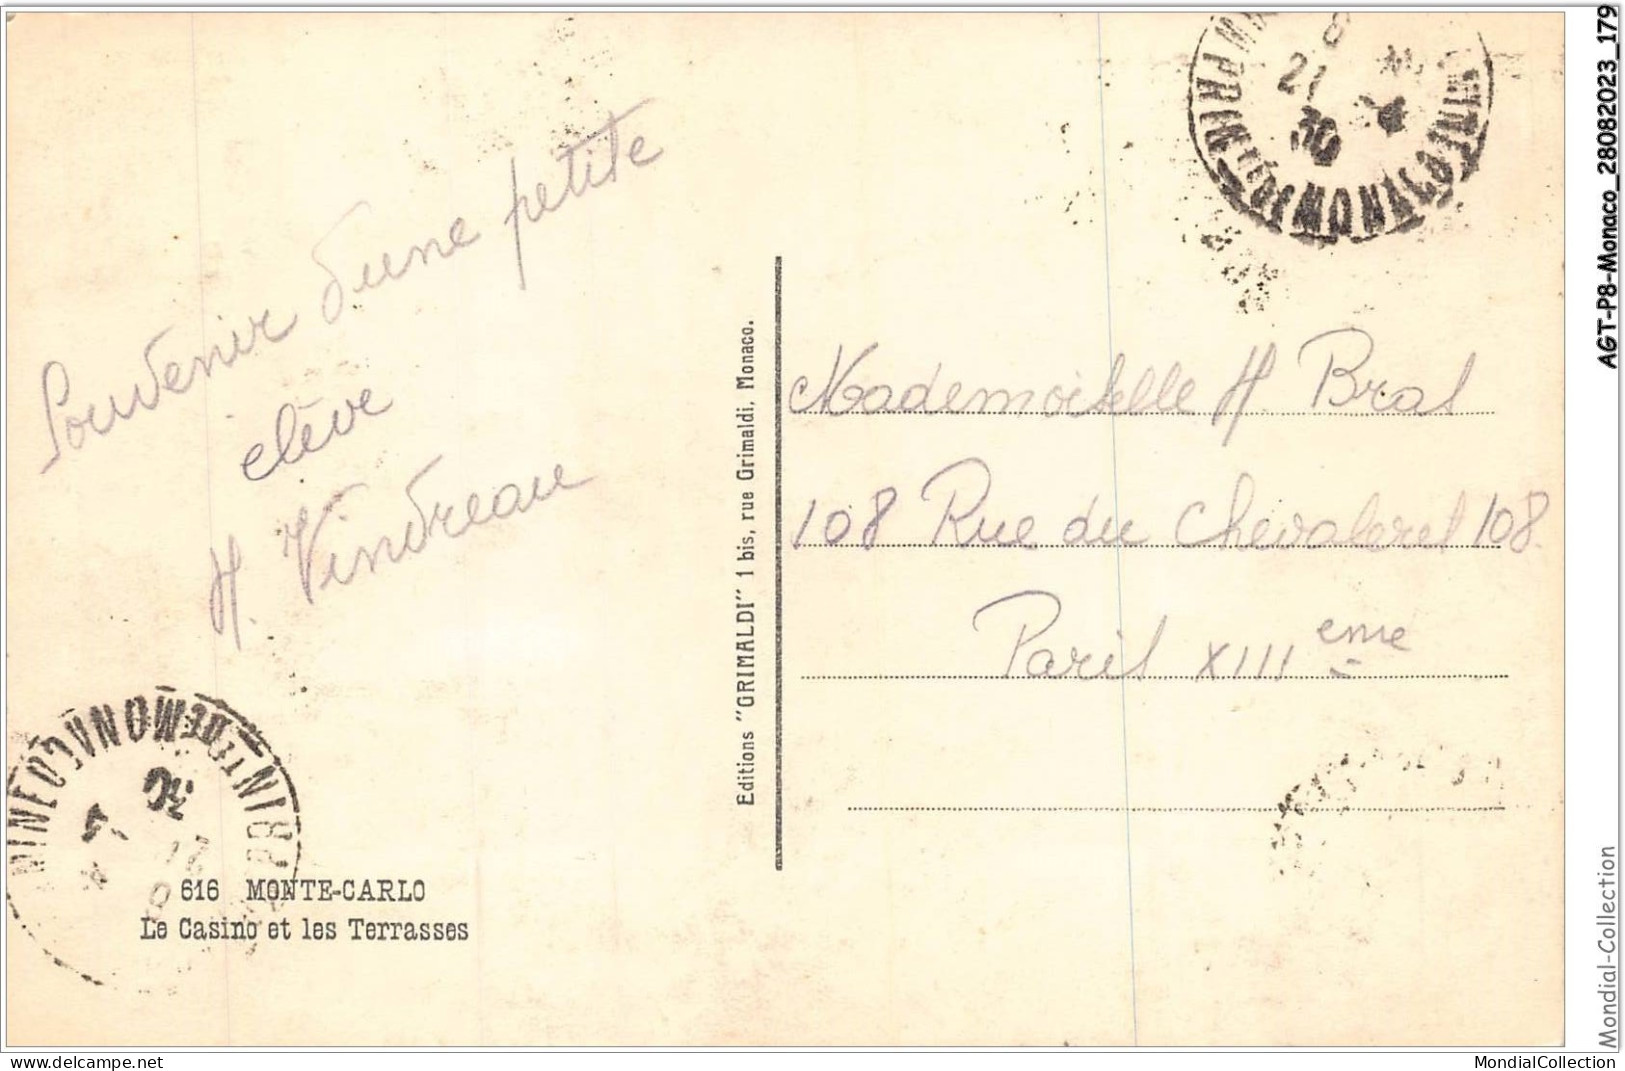 Souvenir d'une petite
élève
H. Vindreau
616 MONTE-CARLO
Le Casino et les Terrasses
Editions "GRIMALDI" 1 bis, rue Grimaldi, Monaco.
Mademoiselle H. Bral
108 Rue du Chevaleret 108
Paris XIII eme
21
30
AGT-P8-Monaco_28082023_179
Mondial-Collection
www.delcampe.net
MondialCollection